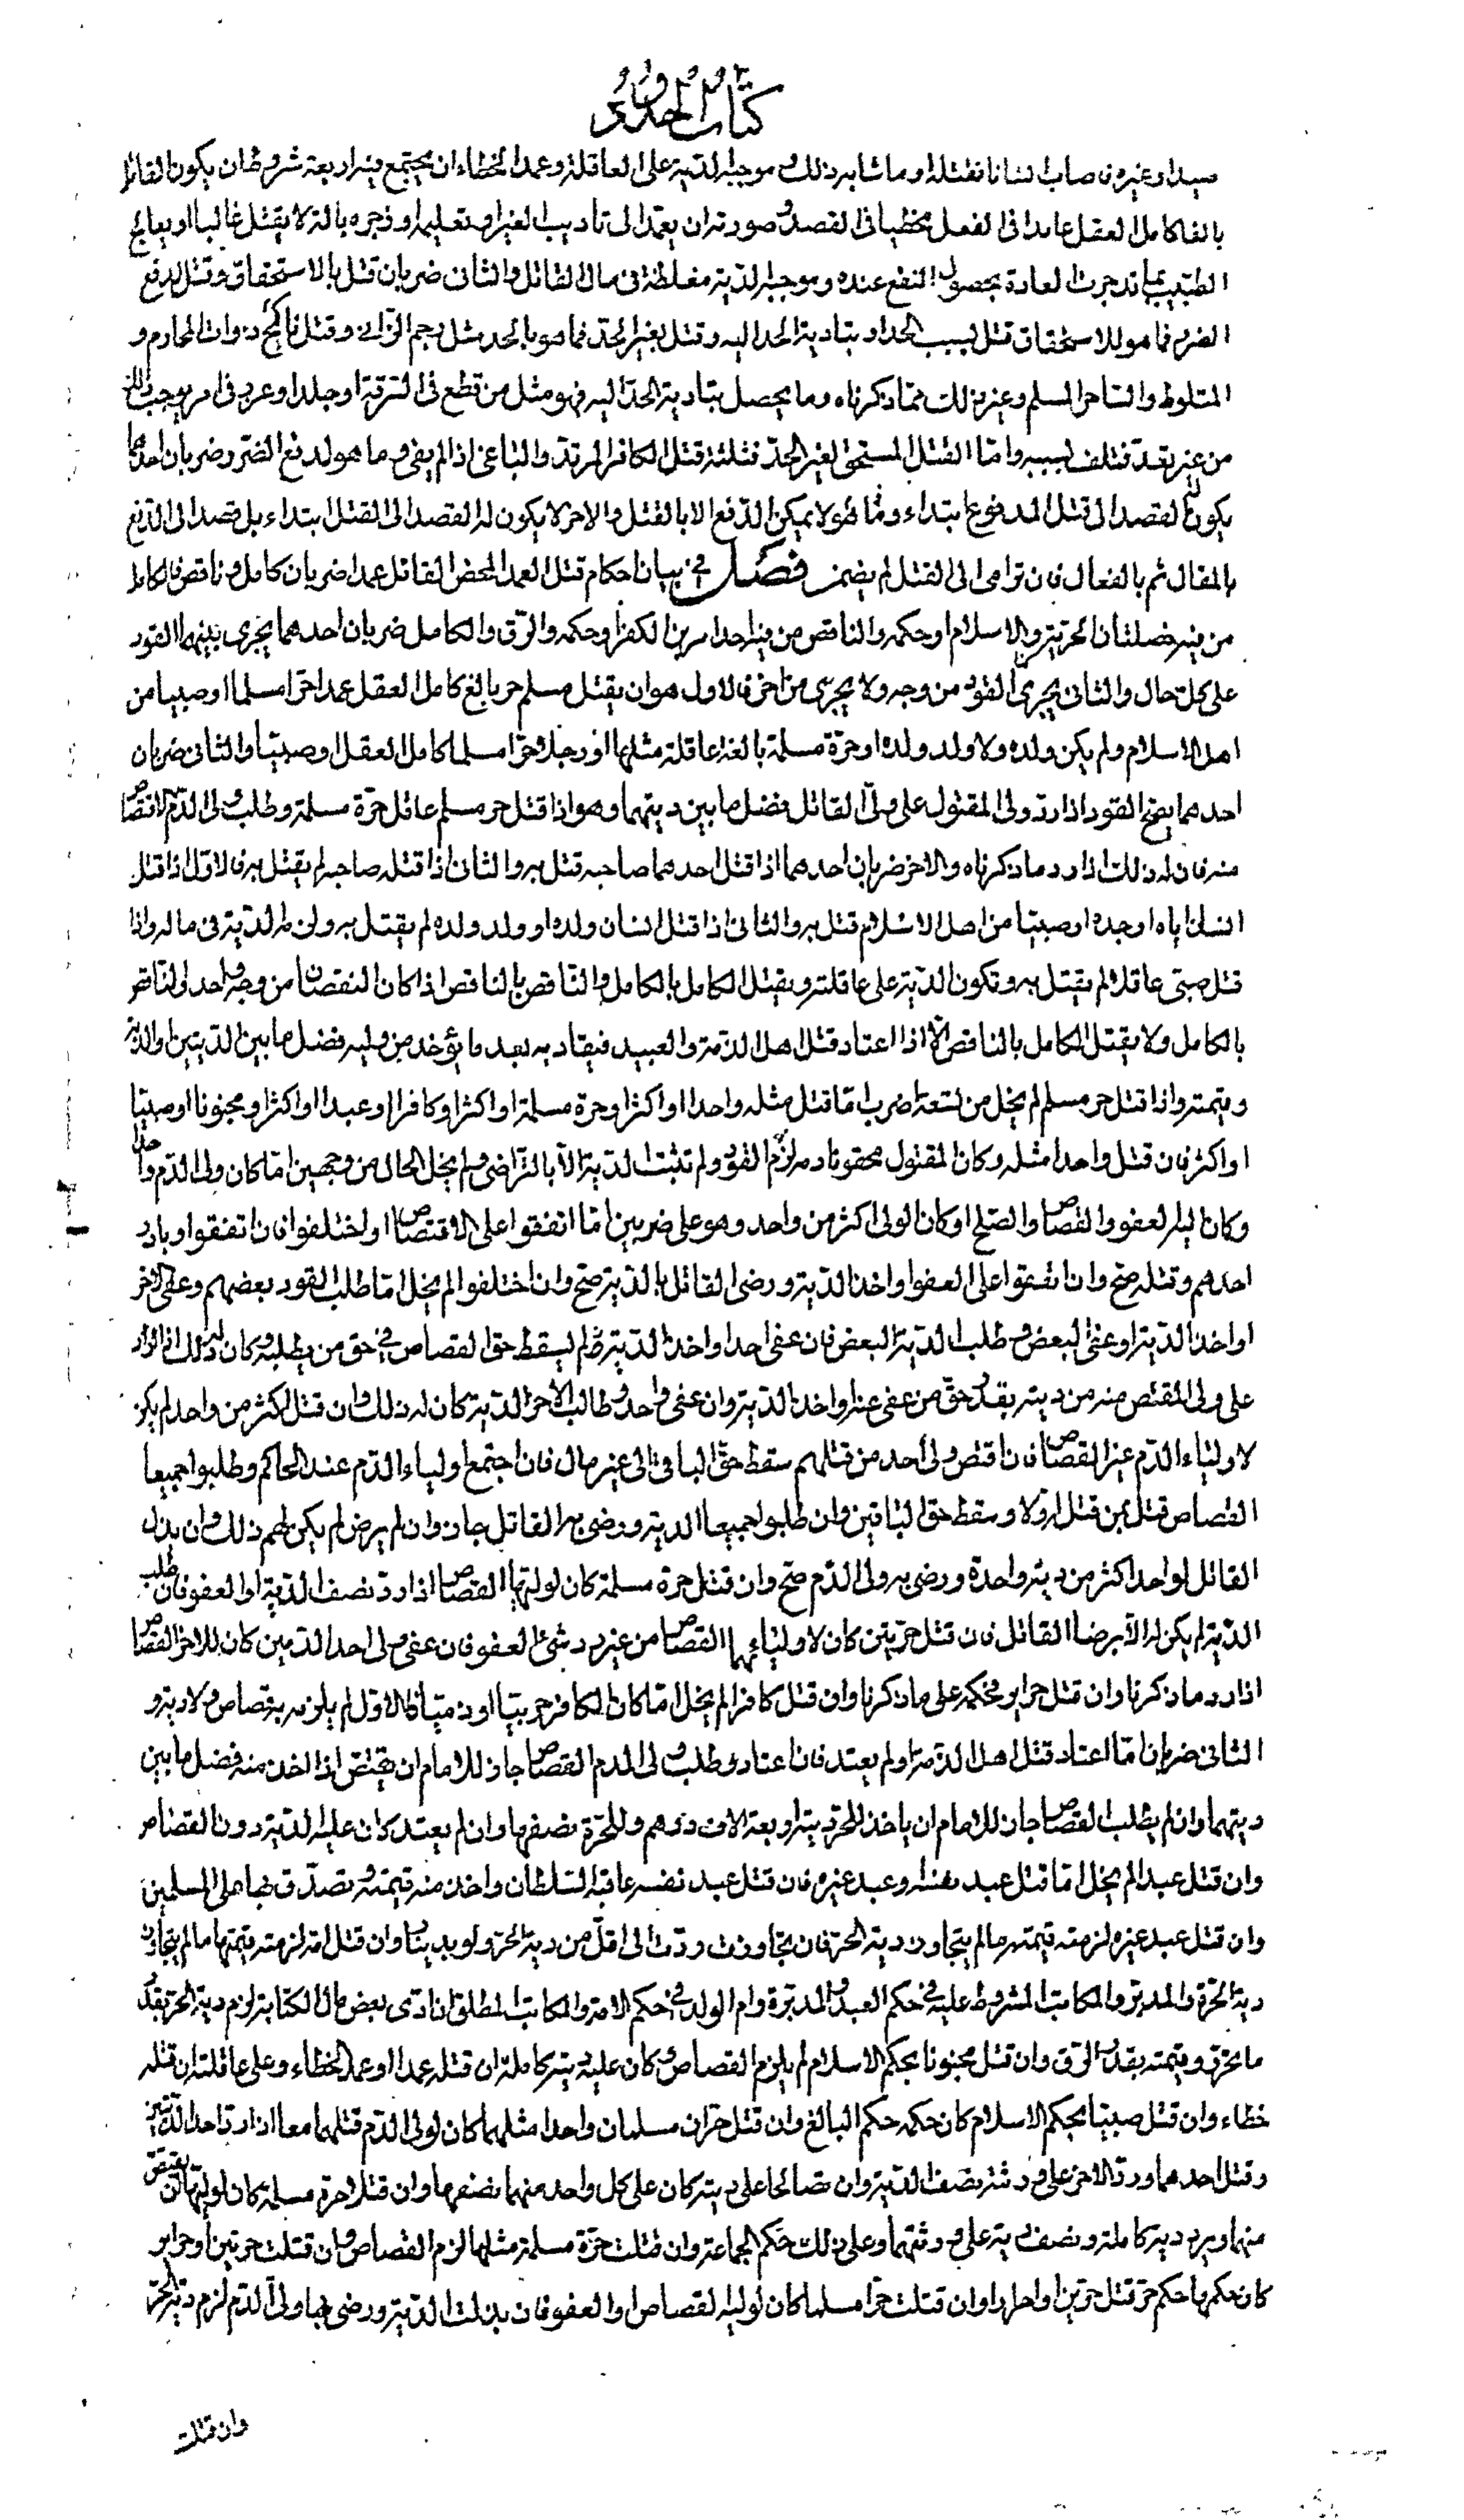 كتاب الحدود
صيدا وغيره فاصاب انسانا فقتله او ما شابه ذلك وموجبه الدية على العاقلة وعمد الخطاء ان يجتمع فيه اربعة شروط ان يكون القاتل
بالغا كامل العقل عامدا فى الفعل مخطيا فى القصد وصورته ان يعمد الى تاديب الغير او تعليمه او زجره بالة لا يقتل غالبا او يعالج
الطبيب بما قد جرت العادة بحصول النفع عنده وموجبه الدية مغلظة فى مال القاتل والثانى ضربان قتل بالاستحقاق وقتل لدفع
الضرر فما هو للاستحقاق قتل بسبب الحد او بتادية الحد اليه وقتل بغير الحد فما هو بالحد مثل رجم الزانى وقتل ناكح ذوات المحارم و
المتلوط والساحر المسلم وغير ذلك مما ذكرناه وما يحصل بتادية الحد اليه فهو مثل من قطع فى السرقة او جلد او عزر فى امر يوجب ذلك
من غير تعد فتلف بسببه واما القتل المستحق لغير الحد فثلثة قتل الكافر المرتد والباغى اذا لم يفئ وما هو لدفع الضرر ضربان احدهما
يكون القصد الى قتل المدفوع ابتداء وهو ما لا يمكن الدفع الا بالقتل والاخر لا يكون له القصد الى القتل ابتداء بل قصد الى الدفع
بالمقال ثم بالفعال فان ترامى الى القتل لم يضمن فصل فى بيان احكام قتل العمد المحض القاتل عمدا ضربان كامل وناقص فالكامل
من فيه خصلتان الحرية والاسلام او حكمه والناقص من فيه احد امرين الكفر او حكمه والرق والكامل ضربان احدهما يجرى بينهما القود
على كل حال والثانى يجرى القود من وجه ولا يجرى من اخر فالاول هو ان يقتل مسلم حر بالغ كامل العقل عمدا حرا مسلما او صبيا من
اهل الاسلام ولم يكن ولده ولا ولد ولده او حرة مسلمة بالغة عاقلة مثلها او رجلا حرا مسلما كامل العقل او صبيا والثانى ضربان
احدهما يصح القود اذا رد ولى المقتول على ولى القاتل فضل ما بين ديتهما وهو اذا قتل حر مسلم عاقل حرة مسلمة وطلب ولى الدم الاقتصاص
منه فان له ذلك اذا رد ما ذكرناه والاخر ضربان احدهما اذا قتل احدهما صاحبه قتل به والثانى اذا قتله صاحبه لم يقتل به فالاول اذا قتل
انسان اباه او جده او صبيا من اهل الاسلام قتل به والثانى اذا قتل انسان ولده او ولد ولده لم يقتل به ولزمه الدية فى ماله واذا
قتل صبى عاقلا لم يقتل به وتكون الدية على عاقلته ويقتل الكامل بالكامل والناقص بالناقص اذا كان النقصان من وجه واحد والناقص
بالكامل ولا يقتل الكامل بالناقص الا اذا اعتاد قتل اهل الذمة والعبيد فيقاد به بعد ما يؤخذ من وليه فضل ما بين الديتين او الدية
وقيمته واذا قتل حر مسلم لم يخل من تسعة اضرب اما قتل مثله واحدا او اكثر او حرة مسلمة او اكثر او كافرا او عبدا او اكثر او مجنونا او صبيا
او اكثر فان قتل واحدا مثله وكان المقتول محقونا دمه لزم القود ولم تثبت الدية الا بالتراضى ولم يخل الحال من وجهين اما كان ولى الدم واحدا
وكان اليه العفو والقصاص والصلح او كان الولى اكثر من واحد وهو على ضربين اما اتفقوا على الاقتصاص او اختلفوا فان اتفقوا وبادر
احدهم وقتله صح وان اتفقوا على العفو او اخذ الدية ورضى القاتل بالدية صح وان اختلفوا لم يخل اما طلب القود بعضهم وعفى الاخر
او اخذ الدية او عفى البعض وطلب الدية البعض فان عفى احد او اخذ الدية لم يسقط حق القصاص فى حق من يطلبه وكان له ذلك اذا رد
على ولى المقتص منه من ديته بقدر حق من عفى عنه او اخذ الدية وان عفى واحد وطالب الاخر الدية كان له ذلك وان قتل اكثر من واحد لم يكن
لاولياء الدم غير القصاص فان اقتص ولى احد من قتلهم سقط حق الباقى الى غير مال فان اجتمع اولياء الدم عند الحاكم وطلبوا جميعا
القصاص قتل بمن قتل اولا وسقط حق الباقين وان طلبوا جميعا الدية ورضى بها القاتل جاز وان لم يرض لم يكن لهم ذلك وان بذل
القاتل لواحد اكثر من دية واحدة ورضى به ولى الدم صح وان قتل حرة مسلمة كان لوليها القصاص اذا رد نصف الدية او العفو فان طلب
الدية لم يكن له الا برضا القاتل فان قتل حرتين كان لاوليائهما القصاص من غير رد شئ او العفو فان عفى ولى احد الدمين كان للاخر القصاص
اذا رد ما ذكرنا وان قتل حرائر فحكمه على ما ذكرنا وان قتل كافرا لم يخل اما كان الكافر حربيا او ذميا فالاول لم يلزمه به قصاص ولا دية و
الثانى ضربان اما اعتاد قتل اهل الذمة او لم يعتد فان اعتاد وطلب ولى الدم القصاص جاز للامام ان يقتص اذا اخذ منه فضل ما بين
ديتهما وان لم يطلب القصاص جاز للامام ان ياخذ للحر دية اربعة الاف درهم وللحرة نصفها وان لم يعتد كان عليه الدية دون القصاص
وان قتل عبدا لم يخل اما قتل عبد نفسه او عبد غيره فان قتل عبد نفسه عاقبه السلطان واخذ منه قيمته وتصدق بها على المسلمين
وان قتل عبد غيره لزمته قيمته ما لم يتجاوز دية الحر فان تجاوزت ردت الى اقل من دية الحر ولو بدينار وان قتل امة لزمته قيمتها ما لم يتجاوز
دية الحرة والمدبر والمكاتب المشروط عليه فى حكم العبد والمدبرة وام الولد فى حكم الامة والمكاتب المطلق ان ادى بعض مال الكتابة لزم دية الحر بقدر
ما تحرر وقيمته بقدر الرق وان قتل مجنونا بحكم الاسلام لم يلزم القصاص وكان عليه دية كاملة ان قتله عمدا او عمد الخطاء وعلى عاقلته ان قتله
خطاء وان قتل صبيا بحكم الاسلام كان حكمه حكم البالغ وان قتل حران مسلمان واحدا مثلهما كان لولى الدم قتلهما معا اذا رد احد الديتين
وقتل احدهما ورد الاخر على ورثته نصف الدية وان تصالحا على دية كان على كل واحد منهما نصفها وان قتلا حرة مسلمة كان لوليها ان يقتص
منهما ويرد دية كاملة ونصف دية على ورثتهما وعلى ذلك حكم الجماعة وان قتلت حرة مسلمة مثلها لزم القصاص وان قتلت حرتين او حرائر
كان حكمها حكم حر قتل حرين او احرارا وان قتلت حرا مسلما كان لوليه القصاص او العفو فان بذلت الدية ورضى بها ولى الدم لزم دية الحر
وان قتلت